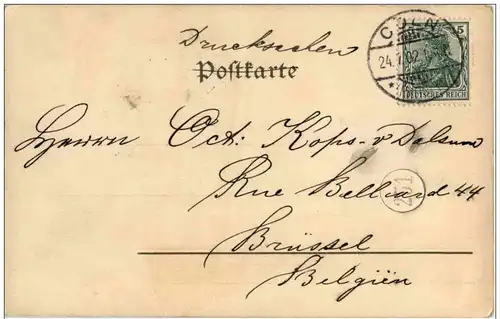 Drucksachen
Postkarte
CÖLN
24.7.02
5
DEUTSCHES REICH
Herrn Oct. Kops-v Dalsum
Rue Belliard 44
251
Brüssel
Belgien